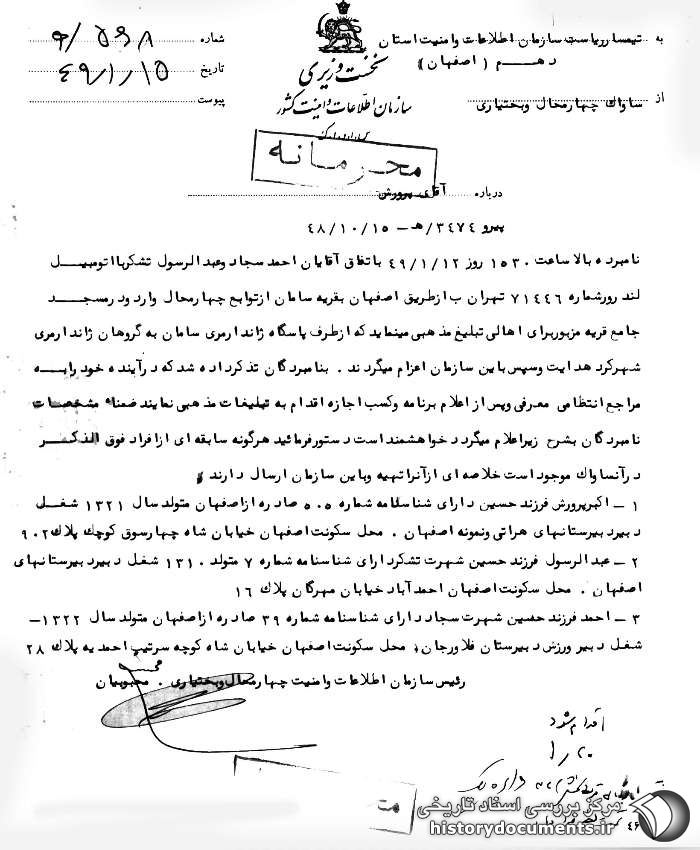 به تیمسار ریاست سازمان اطلاعات وامنیت استان
دهم (اصفهان)
از ساواک چهارمحال وبختیاری
نخست وزیری
سازمان اطلاعات و امنیت کشور
شماره ۵۶۸/ه
تاریخ ۴۹/۱/۱۵
پیوست
محرمانه
درباره آقای پرورش
پیرو ۳۴۷۴/هـ - ۴۸/۱۰/۱۵
نامبرده بالا ساعت ۱۵۳۰ روز ۴۹/۱/۱۲ باتفاق آقایان احمد سجاد وعبدالرسول تشکر با اتومبیل
لندرور شماره ۷۱۴۴۶ تهران ب از طریق اصفهان بقریه سامان از توابع چهارمحال وارد و در مسجد
جامع قریه مزبور برای اهالی تبلیغ مذهبی مینماید که از طرف پاسگاه ژاندارمری سامان به گروهان ژاندارمری
شهرکرد هدایت وسپس باین سازمان اعزام میگردند . بنامبردگان تذکر داده شد که در آینده خود را به
مراجع انتظامی معرفی وپس از اعلام برنامه وکسب اجازه اقدام به تبلیغات مذهبی نمایند ضمناً مشخصات
نامبردگان بشرح زیر اعلام میگردد خواهشمند است دستور فرمائید هرگونه سابقه ای از افراد فوق الذکر
در آنساواک موجود است خلاصه ای از آنرا تهیه وباین سازمان ارسال دارند
۱ - اکبر پرورش فرزند حسین دارای شناسنامه شماره ۵۰۵ صادره از اصفهان متولد سال ۱۳۲۱ شغل
دبیر دبیرستانهای هراتی ونمونه اصفهان . محل سکونت اصفهان خیابان شاه چهارسوق کوچک پلاک ۹۰۲
۲ - عبدالرسول فرزند حسین شهرت تشکر دارای شناسنامه شماره ۷ متولد ۱۳۱۰ شغل دبیر دبیرستانهای
اصفهان . محل سکونت اصفهان احمدآباد خیابان مهرگان پلاک ۱۶
۳ - احمد فرزند حسین شهرت سجاد دارای شناسنامه شماره ۳۹ صادره از اصفهان متولد سال ۱۳۲۲-
شغل دبیر ورزش دبیرستان فلاورجان محل سکونت اصفهان خیابان شاه کوچه سرتیپ احمدیه پلاک ۲۸
رئیس سازمان اطلاعات وامنیت چهارمحال وبختیاری . محبوبیان
اقدام شود
۱/۲۰
مرکز بررسی اسناد تاریخی
historydocuments.ir